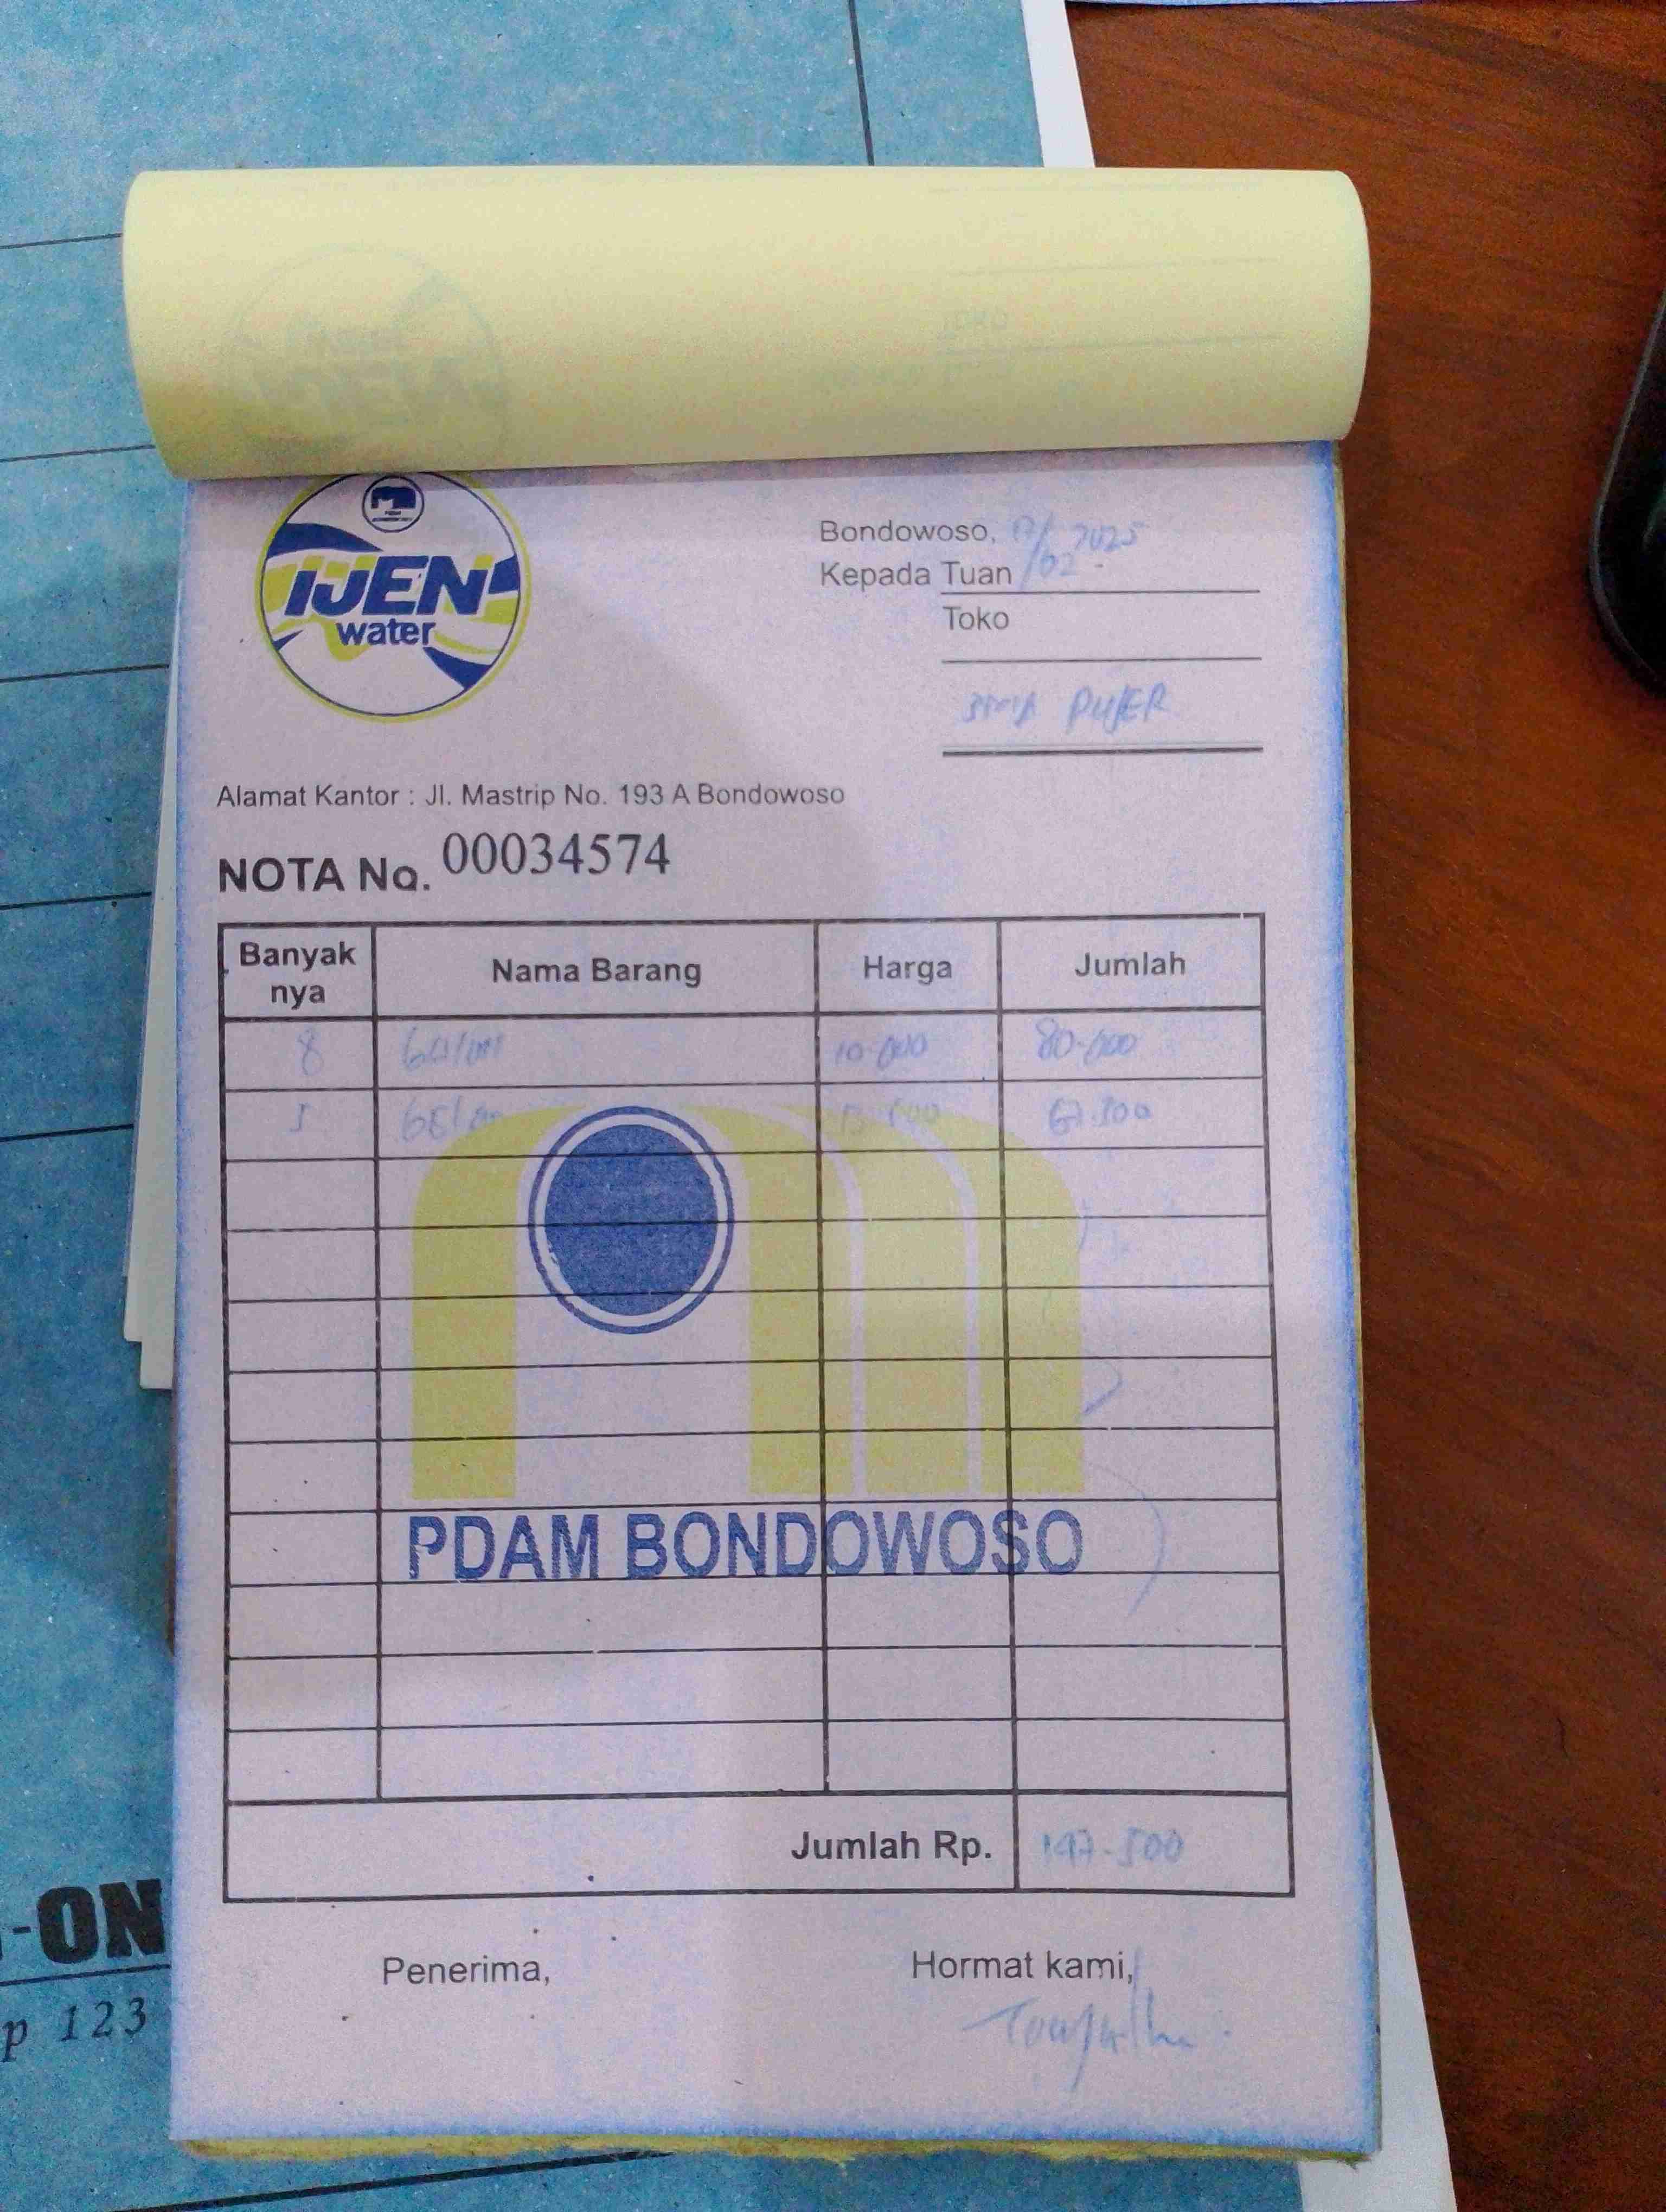 IJEN
water
Bondowoso, 17/02 2025
Kepada Tuan
Toko
PUJER
Alamat Kantor : Jl. Mastrip No. 193 A Bondowoso
NOTA No. 00034574
Banyak nya Nama Barang Harga Jumlah
8 Galon 10.000 80.000
5 Gelas 13.500 67.500
PDAM BONDOWOSO
Jumlah Rp. 147.500
Penerima, Hormat kami,
-ON
p 123